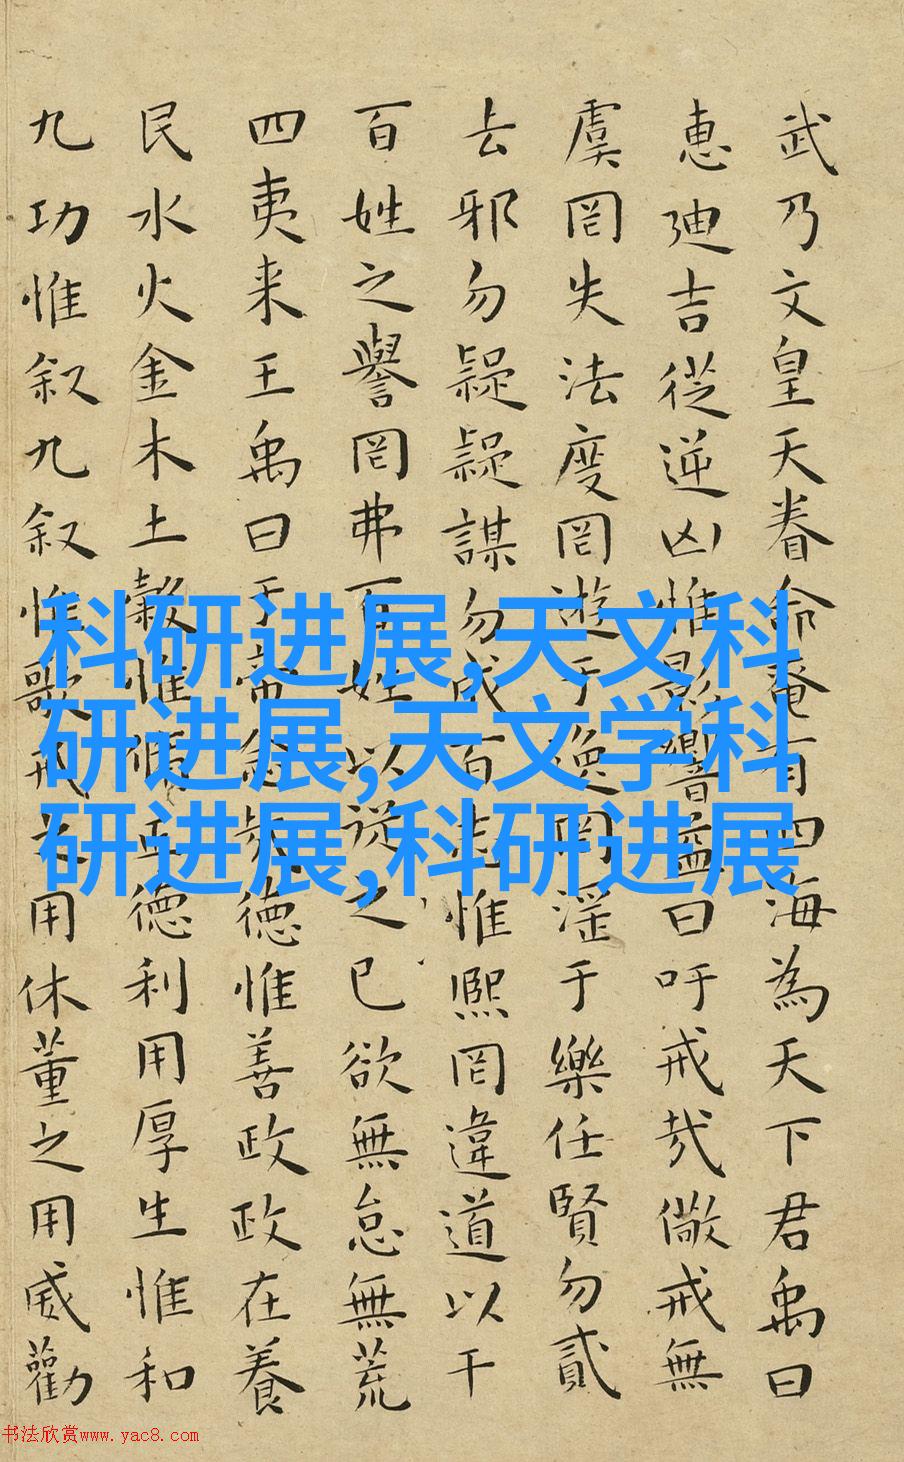 武乃文皇天眷命奄有四海為天下君禹曰
惠迪吉從逆凶惟影響益曰吁戒哉儆戒無
虞罔失法度罔遊于逸罔淫于樂任賢勿貳
去邪勿疑疑謀勿成百志惟熙罔違道以干
百姓之譽罔弗百姓以從之已欲無怠無荒
四夷来王禹曰于帝念哉德惟善政政在養
民水火金木土穀惟脩正德利用厚生惟和
九功惟叙九叙惟歌戒之用休董之用威勸
科研进展,天文科
研进展,天文学科
研进展,科研进展
书法欣赏www.yac8.com